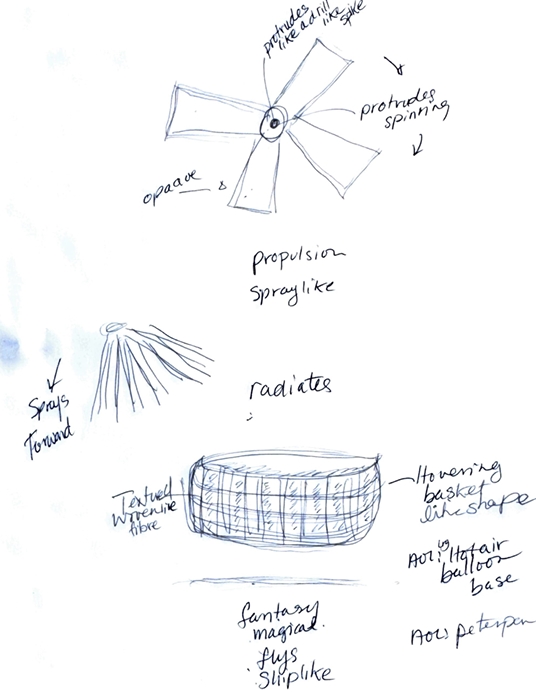 protrudes
like a drill like
spike
protrudes
spinning
opaque
propulsion
spraylike
sprays
forward
radiates
Textured
fibre
Hovering
basket
like shape
Hotair
balloon
base
peterpan
fantasy
magical.
flys
shiplike